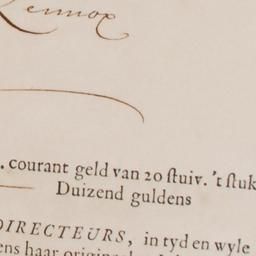 Lennox
. courant geld van 20 ſtuiv. 't ſtuk
Duizend guldens
DIRECTEURS, in tyd en wyle
ens haar